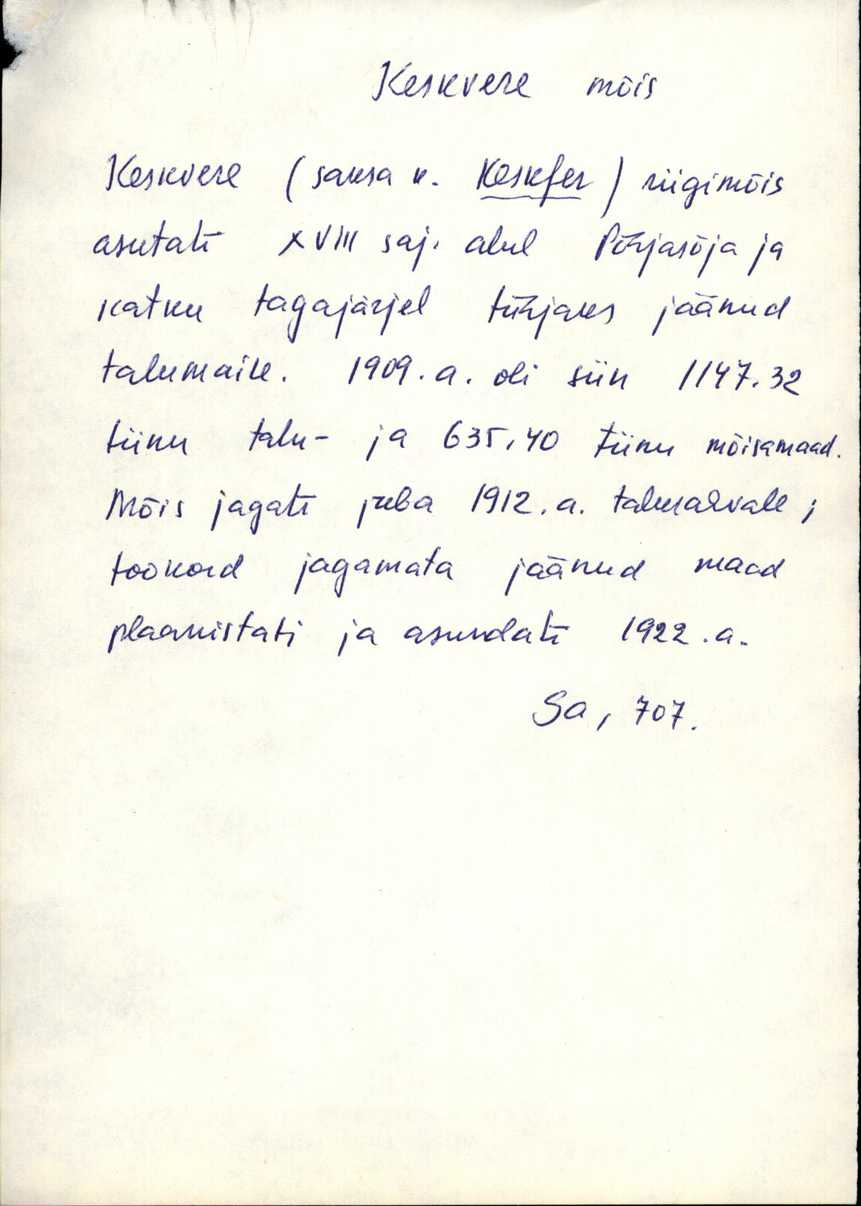 Keskvere mõis
Keskvere (saksa k. Keskfer) riigimõis
asutati XVIII saj. alul Põhjasõja ja
katku tagajärjel tühjaks jäänud
talumaile. 1909.a. oli siin 1147.32
tiinu talu- ja 635,40 tiinu mõisamaad.
Mõis jagati juba 1912.a. talurahvale;
tookord jagamata jäänud maad
plaanistati ja asundati 1922.a.
Sa, 707.